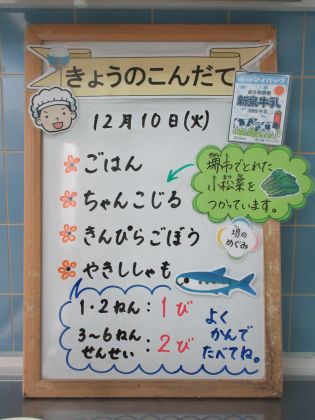 きょうのこんだて
12月10日(火)
新泉牛乳
ごはん
ちゃんこじる
きんぴらごぼう
やきししゃも
堺市でとれた
小松菜を
つかっています。
堺の
めぐみ
1・2ねん：1び
3~6ねん
せんせい：2び
よく
かんで
たべてね。